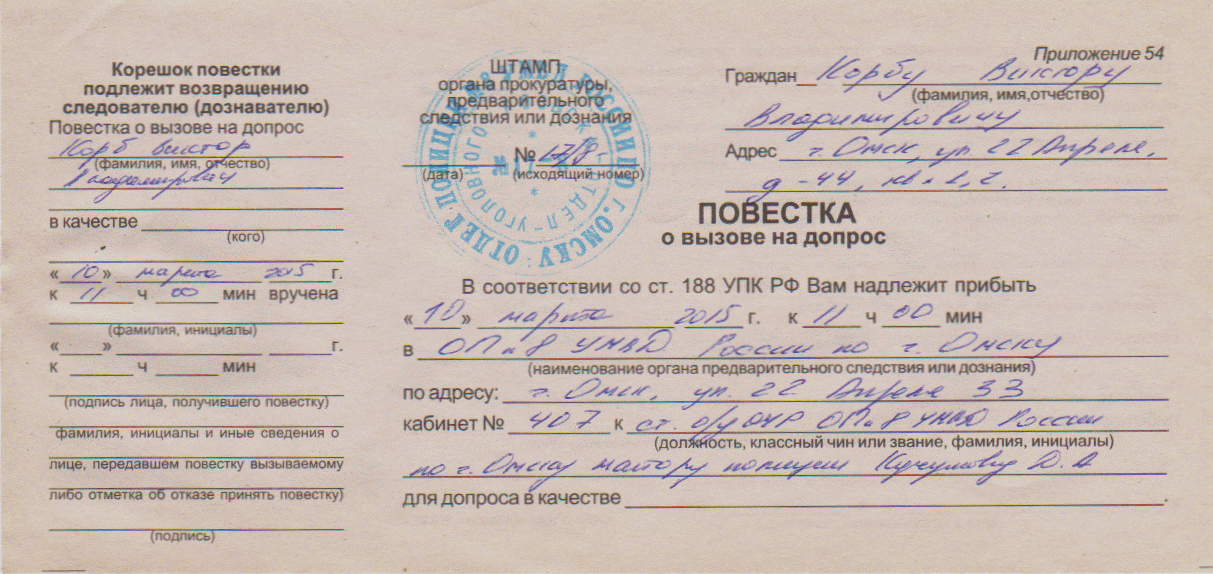 Корешок повестки
подлежит возвращению
следователю (дознавателю)
Повестка о вызове на допрос
Корб Виктор
(фамилия, имя, отчество)
Владимирович
в качестве
(кого)
«10» марта 2015 г.
к 11 ч 00 мин вручена
(фамилия, инициалы)
« » г.
к ч мин
(подпись лица, получившего повестку)
фамилия, инициалы и иные сведения о
лице, передавшем повестку вызываемому
либо отметка об отказе принять повестку)
(подпись)
ШТАМП
органа прокуратуры,
предварительного
следствия или дознания
№
(дата) (исходящий номер)
ОТДЕЛ ПОЛИЦИИ №8 УМВД РОССИИ ПО Г. ОМСКУ
ОТДЕЛ УГОЛОВНОГО
Приложение 54
Граждан Корбу Виктору
(фамилия, имя,отчество)
Владимировичу
Адрес г. Омск, ул 22 Апреля,
д-44, кв
ПОВЕСТКА
о вызове на допрос
В соответствии со ст. 188 УПК РФ Вам надлежит прибыть
«10» марта 2015 г. к 11 ч 00 мин
в ОП №8 УМВД России по г. Омску
(наименование органа предварительного следствия или дознания)
по адресу: г. Омск, ул. 22 Апреля 33
кабинет № 407 к ст. о/у ОУР ОП №8 УМВД России
(должность, классный чин или звание, фамилия, инициалы)
по г. Омску майору полиции Д.А
для допроса в качестве .